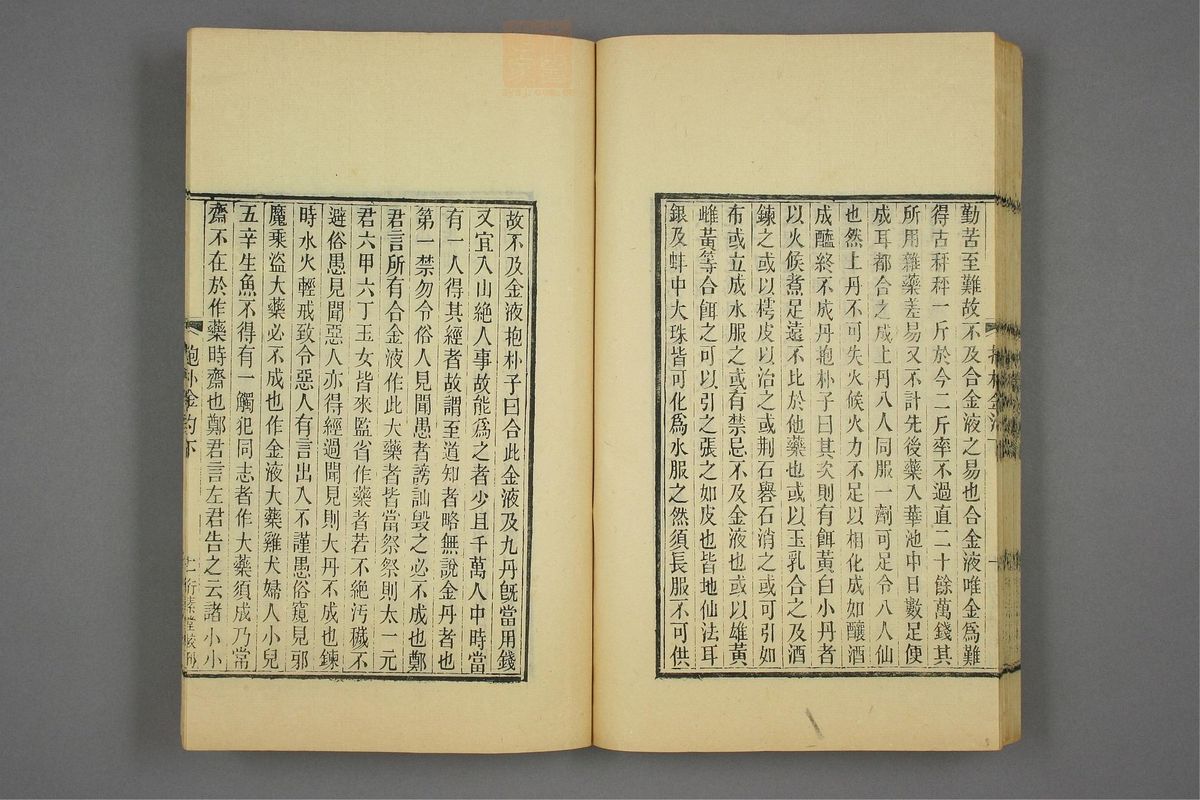 勤苦至難故不及合金液之易也合金液唯金為難
得古秤秤一斤於今二斤率不過直二十餘萬錢其
所用雜藥差易又不計先後藥入華池中日數足便
成耳都合之成上丹八人同服一劑可足令八人仙
也然上丹不可失火候火力不足以相化成如釀酒
成醯終不成丹抱朴子曰其次則有餌黃白小丹者
以火候煮足遠不比於他藥也或以玉乳合之及酒
鍊之或以樗皮以治之或荆石礜石消之或可引如
布或立成水服之或有禁忌不及金液也或以雄黃
雌黃等合餌之可以引之張之如皮也皆地仙法耳
銀及蚌中大珠皆可化爲水服之然須長服不可供
故不及金液抱朴子曰合此金液及九丹旣當用錢
又宜入山絶人事故能爲之者少且千萬人中時當
有一人得其經者故謂至道知者略無說金丹者也
第一禁勿令俗人見聞愚者謗訕毀之必不成也鄭
君言所有合金液作此大藥者皆當祭祭則太一元
君六甲六丁玉女皆來監省作藥者若不絶汚穢不
避俗愚見聞惡人亦得經過聞見則大丹不成也鍊
時水火輕戒致令惡人有言出入不謹愚俗窺見邪
魔乘盜大藥必不成也作金液大藥雞犬婦人小兒
五辛生魚不得有一觸犯同志者作大藥須成乃常
齋不在於作藥時齋也鄭君言左君告之云諸小小
抱朴金汋下